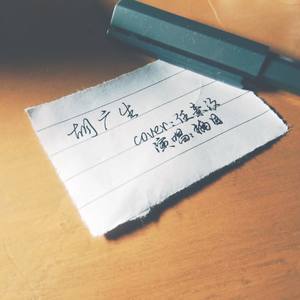 胡广生
cover:任素汐
演唱:楠目